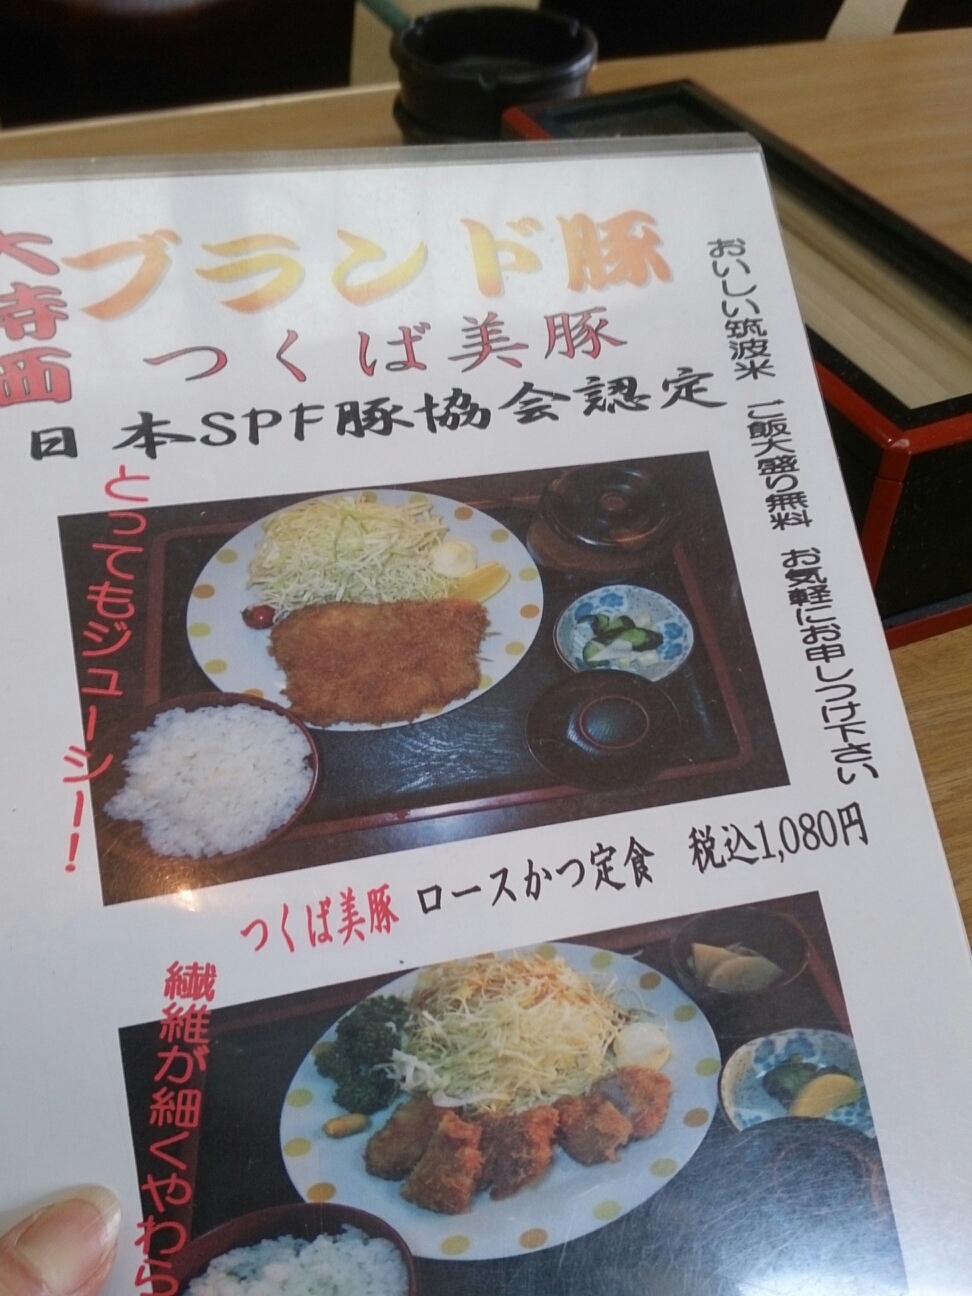 ブランド豚
つくば美豚
日本SPF豚協会認定
おいしい筑波米 ご飯大盛り無料 お気軽にお申しつけ下さい
とってもジューシー!
つくば美豚 ロースかつ定食 税込1,080円
繊維が細くやわら